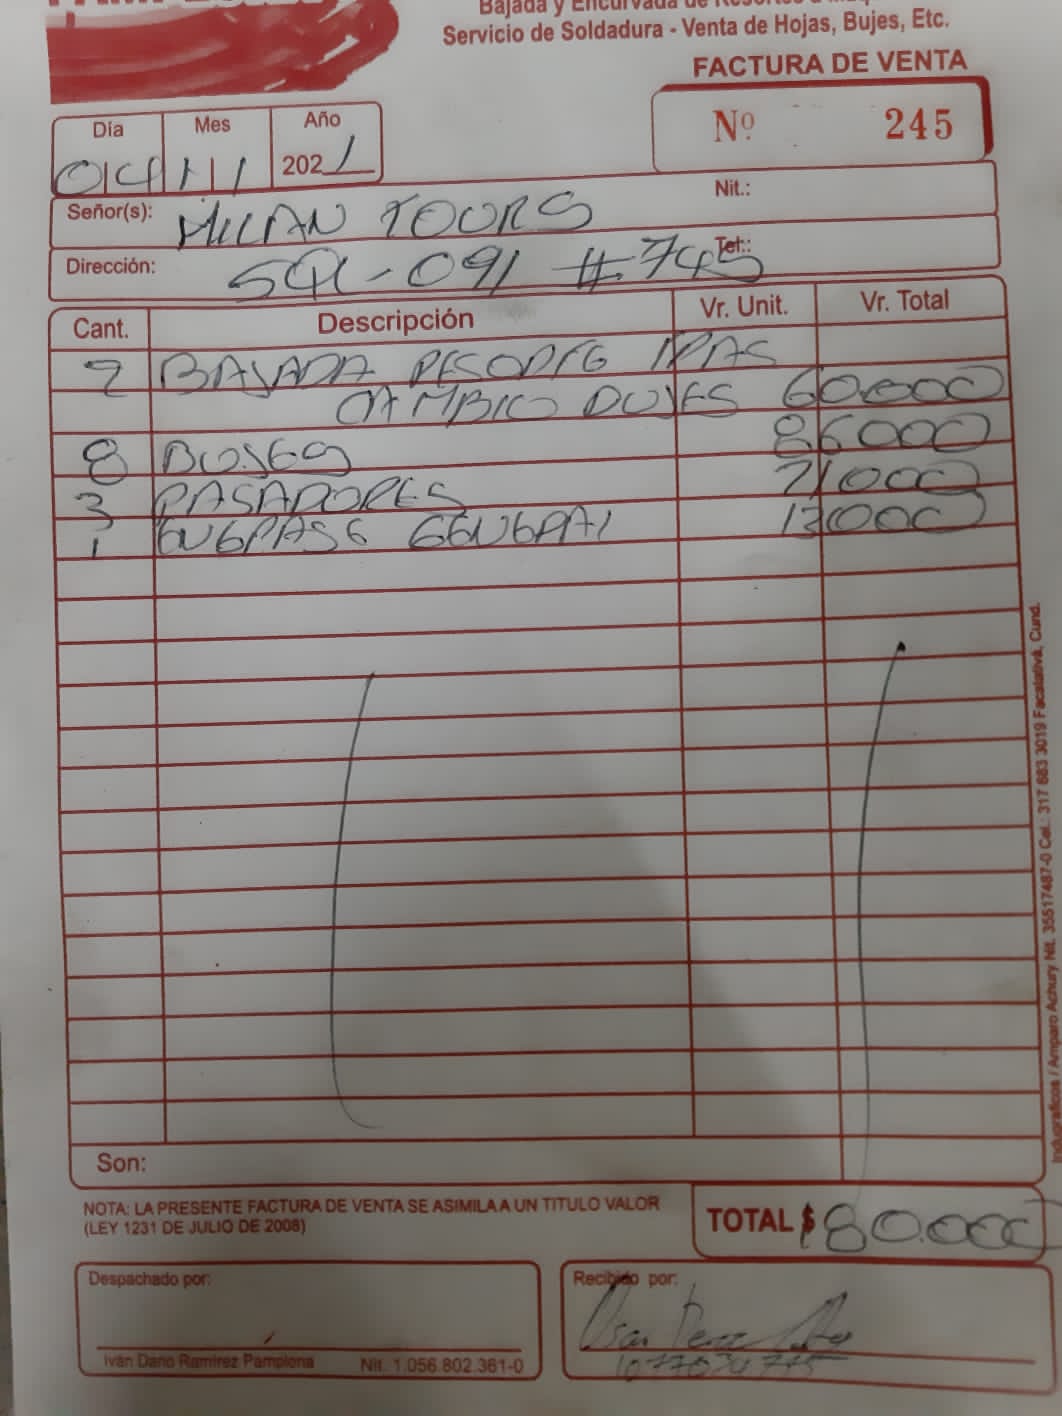 Bajada y Encurvada de
Servicio de Soldadura - Venta de Hojas, Bujes, Etc.
FACTURA DE VENTA
Nº 245
Día Mes Año
04 11 2021
Señor(s): MILAN TOURS Nit.:
Dirección: SQL-091 #745 Tel.:
Cant. Descripción Vr. Unit. Vr. Total
2 BAJADA
CAMBIO 60.000
8 BUJES 86000
3 PASADORES 21000
1 13000
Son:
NOTA: LA PRESENTE FACTURA DE VENTA SE ASIMILA A UN TITULO VALOR
(LEY 1231 DE JULIO DE 2008)
TOTAL $ 180.000
Despachado por: Recibido por:
Ivan Dario Ramirez Pamplona Nit. 1.056.802.361-0
Indugraficos / Amparo Achury Nit. 35517487-0 Cel.: 317 683 3019 Facatativá, Cund.